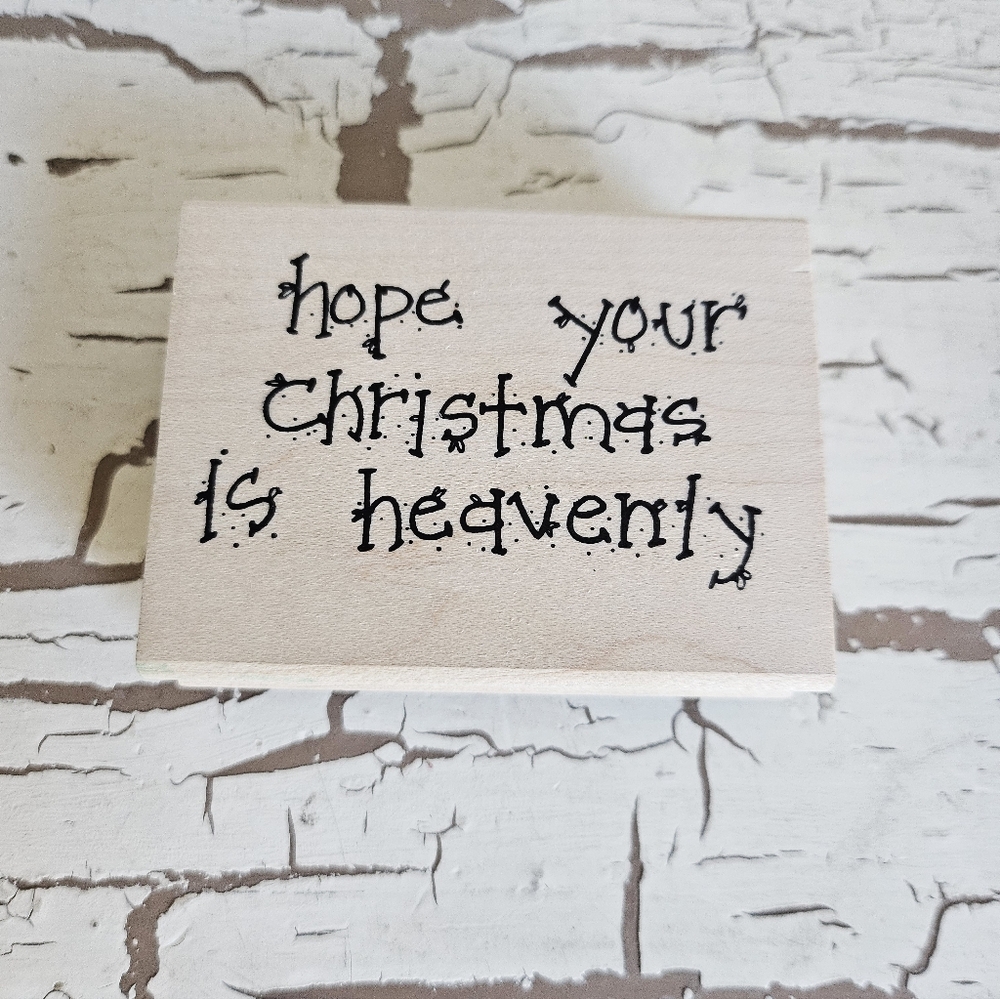 hope your
Christmas
is heavenly